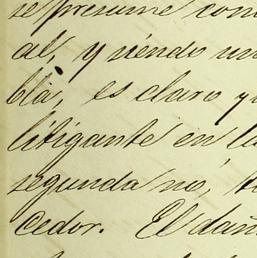 se presume con
al, y siendo un
bla, es claro y
litigante en la
segunda no, t
cedor. El dañ